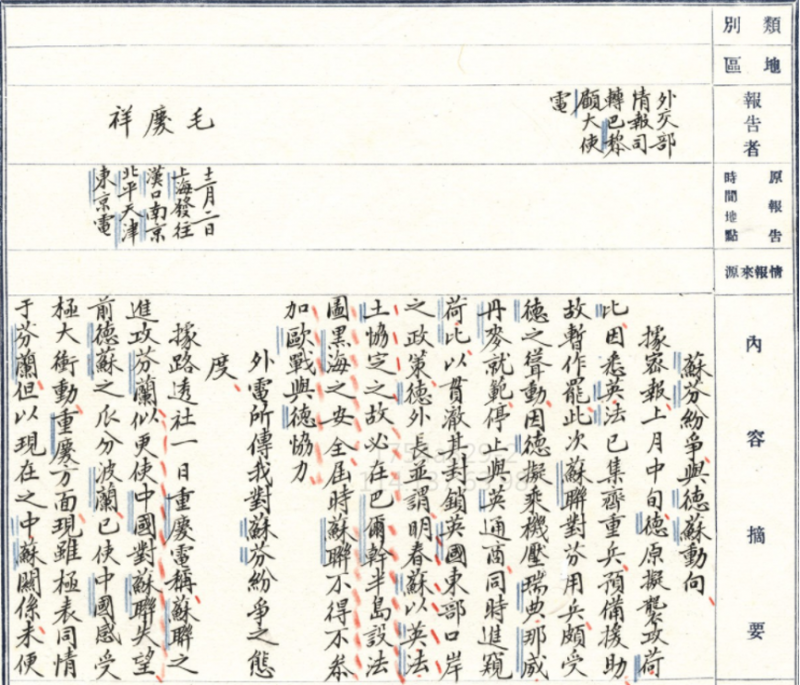 類別
地區
報告者
原報告時間地點
情報來源
內容摘要
外交部
情報司
轉巴黎
顧大使
電
毛慶祥
十二月二日
上海發往
漢口南京
北平天津
東京電
蘇芬紛爭與德蘇動向
據密報上月中旬德原擬襲攻荷
比因悉英法已集齊重兵預備援助
故暫作罷此次蘇聯對芬用兵頗受
德之聳動因德擬乘機壓瑞典那威
丹麥就範停止與英通商同時進窺
荷比以貫澈其封鎖英國東部口岸
之政策德外長並謂明春蘇以英法
土協定之故必在巴爾幹半島設法
圖黑海之安全屆時蘇聯不得不參
加歐戰與德協力
外電所傳我對蘇芬紛爭之態
度
據路透社一日重慶電稱蘇聯之
進攻芬蘭似更使中國對蘇聯失望
前德蘇之瓜分波蘭已使中國感受
極大衝動重慶方面現雖極表同情
于芬蘭但以現在之中蘇關係未便